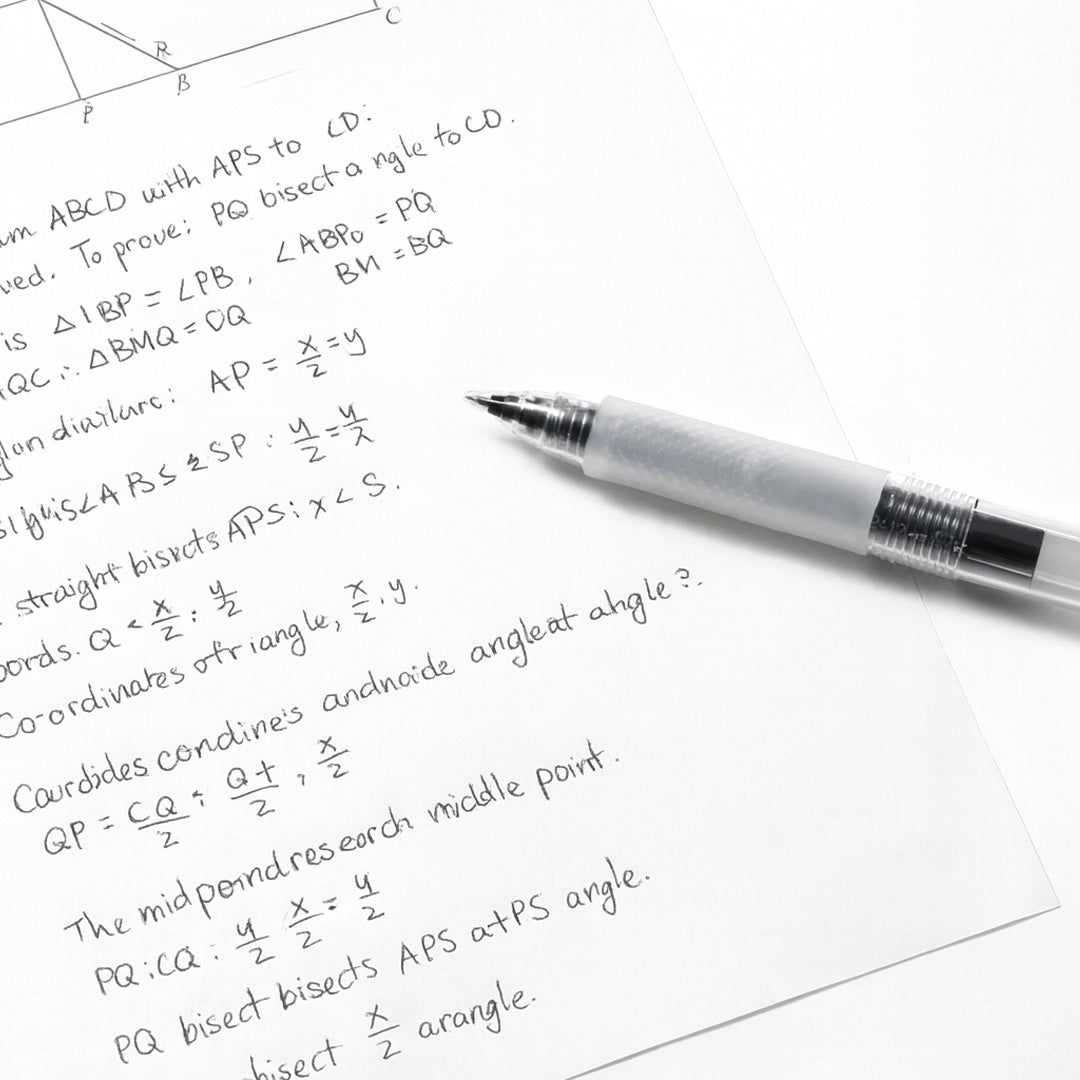 R
C
B
P
um ABCD with APS to CD:
ved. To prove: PQ bisect a ngle to CD.
is △IBP = ∠PB, ∠ABPo = PQ
BN = BQ
QC ∴ △BMQ = OQ
AP = x/2 = y
∠A BS ≤ 2SP : y/2 = y/x
straight bisrcts APS: x < S.
ords. Q < x/2 : y/2
Co-ordinates ofr iangle, x/2, y.
Caurdides condine's andnoide angleat ahgle?.
QP = CQ/2 : Q+/2, x/2
The midpoindreseorch middle point.
PQ:CQ: y/2 x/2 = y/2
PQ bisect bisects APS at PS angle.
bisect x/2 arangle.